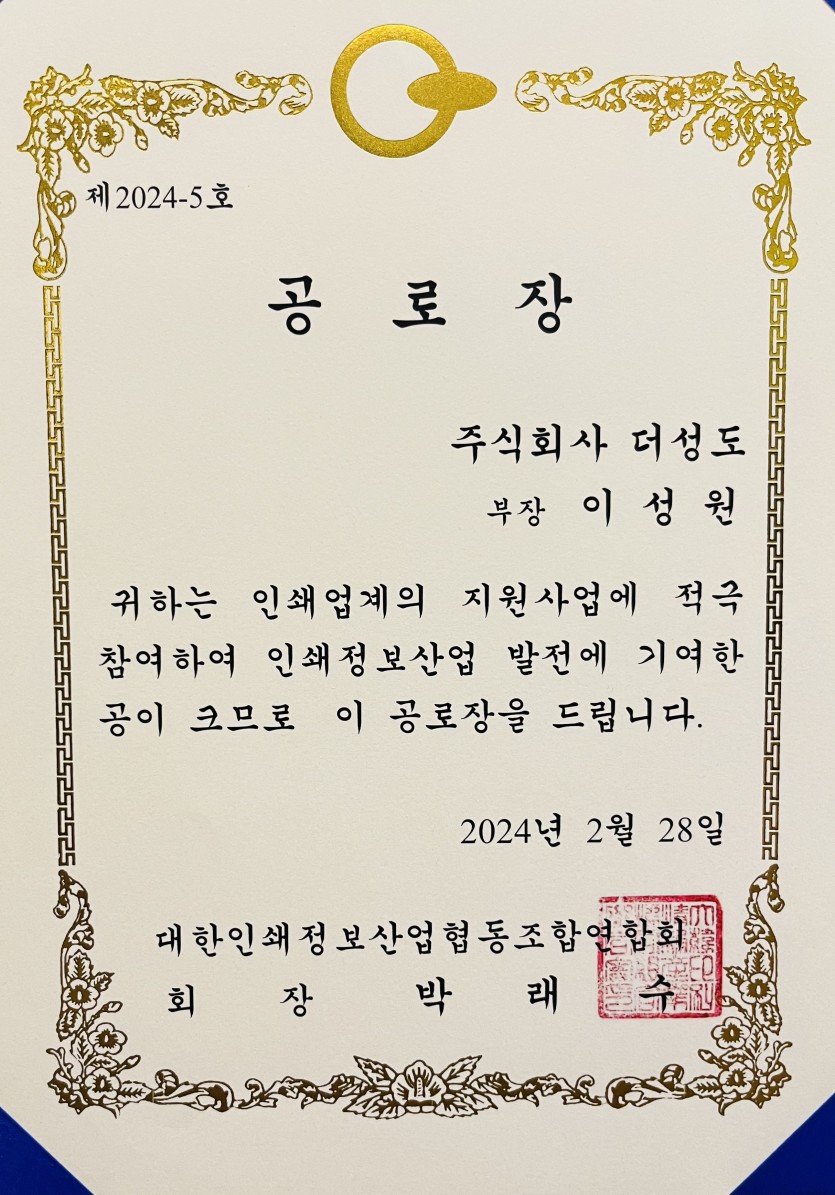 제2024-5호
공 로 장
주식회사 더성도
부장 이 성 원
귀하는 인쇄업계의 지원사업에 적극
참여하여 인쇄정보산업 발전에 기여한
공이 크므로 이 공로장을 드립니다.
2024년 2월 28일
대한인쇄정보산업협동조합연합회
회 장 박 래 수